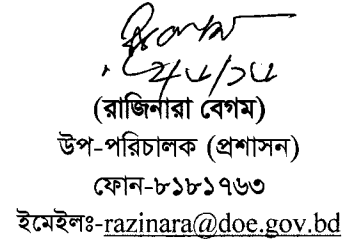 (রাজিনারা বেগম)
উপ-পরিচালক (প্রশাসন)
ফোন-৮১৮১৭৬৩
ইমেইলঃ-razinara@doe.gov.bd